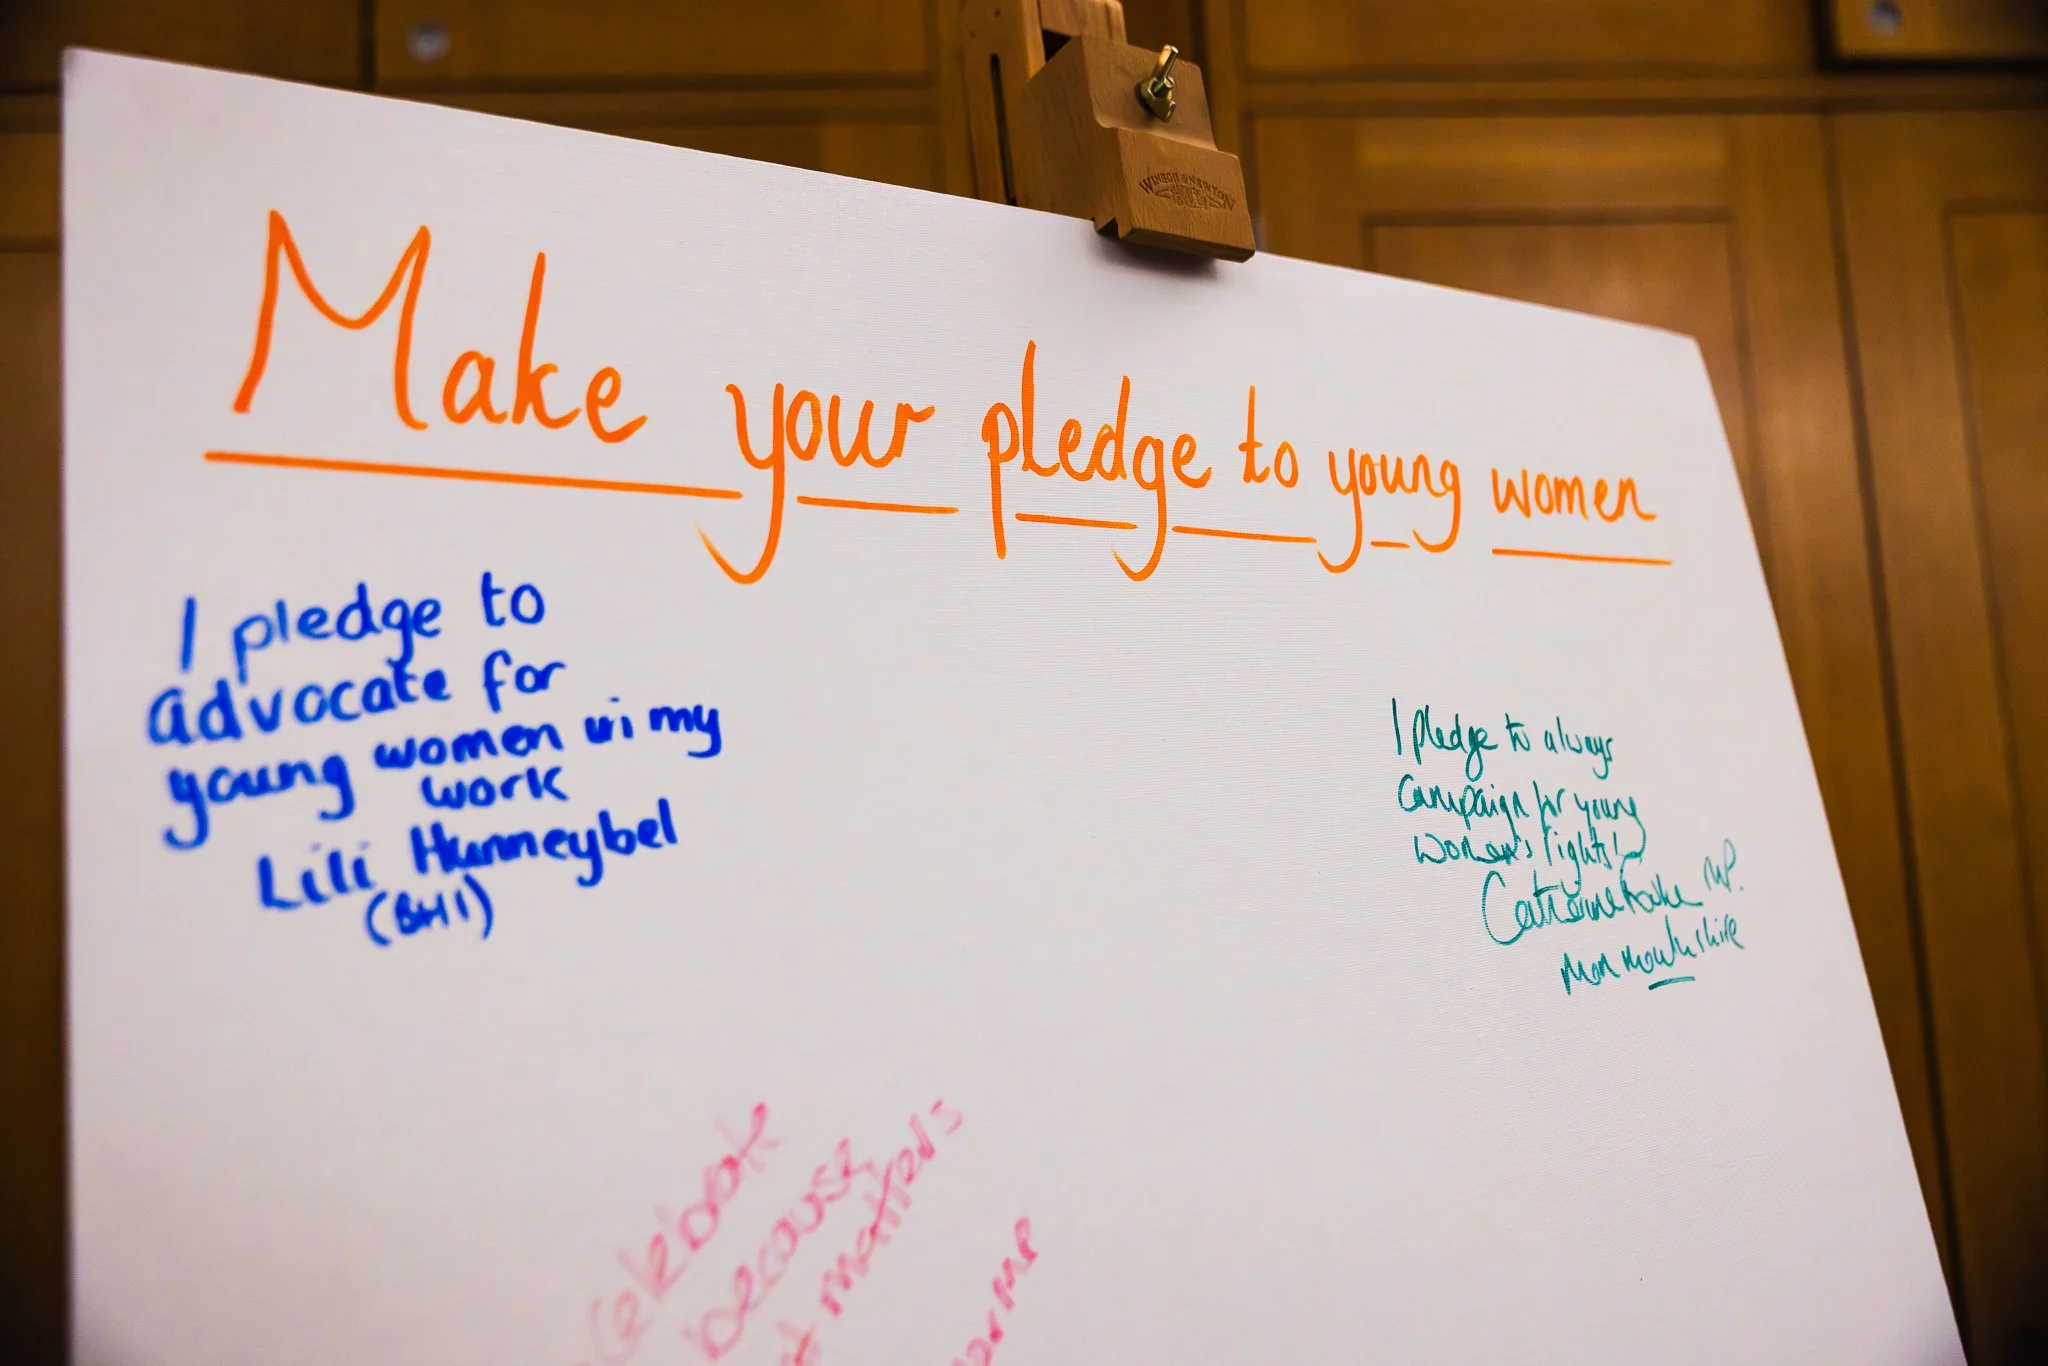 WINSOR & NEWTON
Make your pledge to young women
I pledge to
advocate for
young women in my
work
Lili Hunneybel
(BHI)
I pledge to always
Campaign for young
Women's rights!
Catherine Fookes MP.
Monmouthshire
celebrate
because
matters
MP